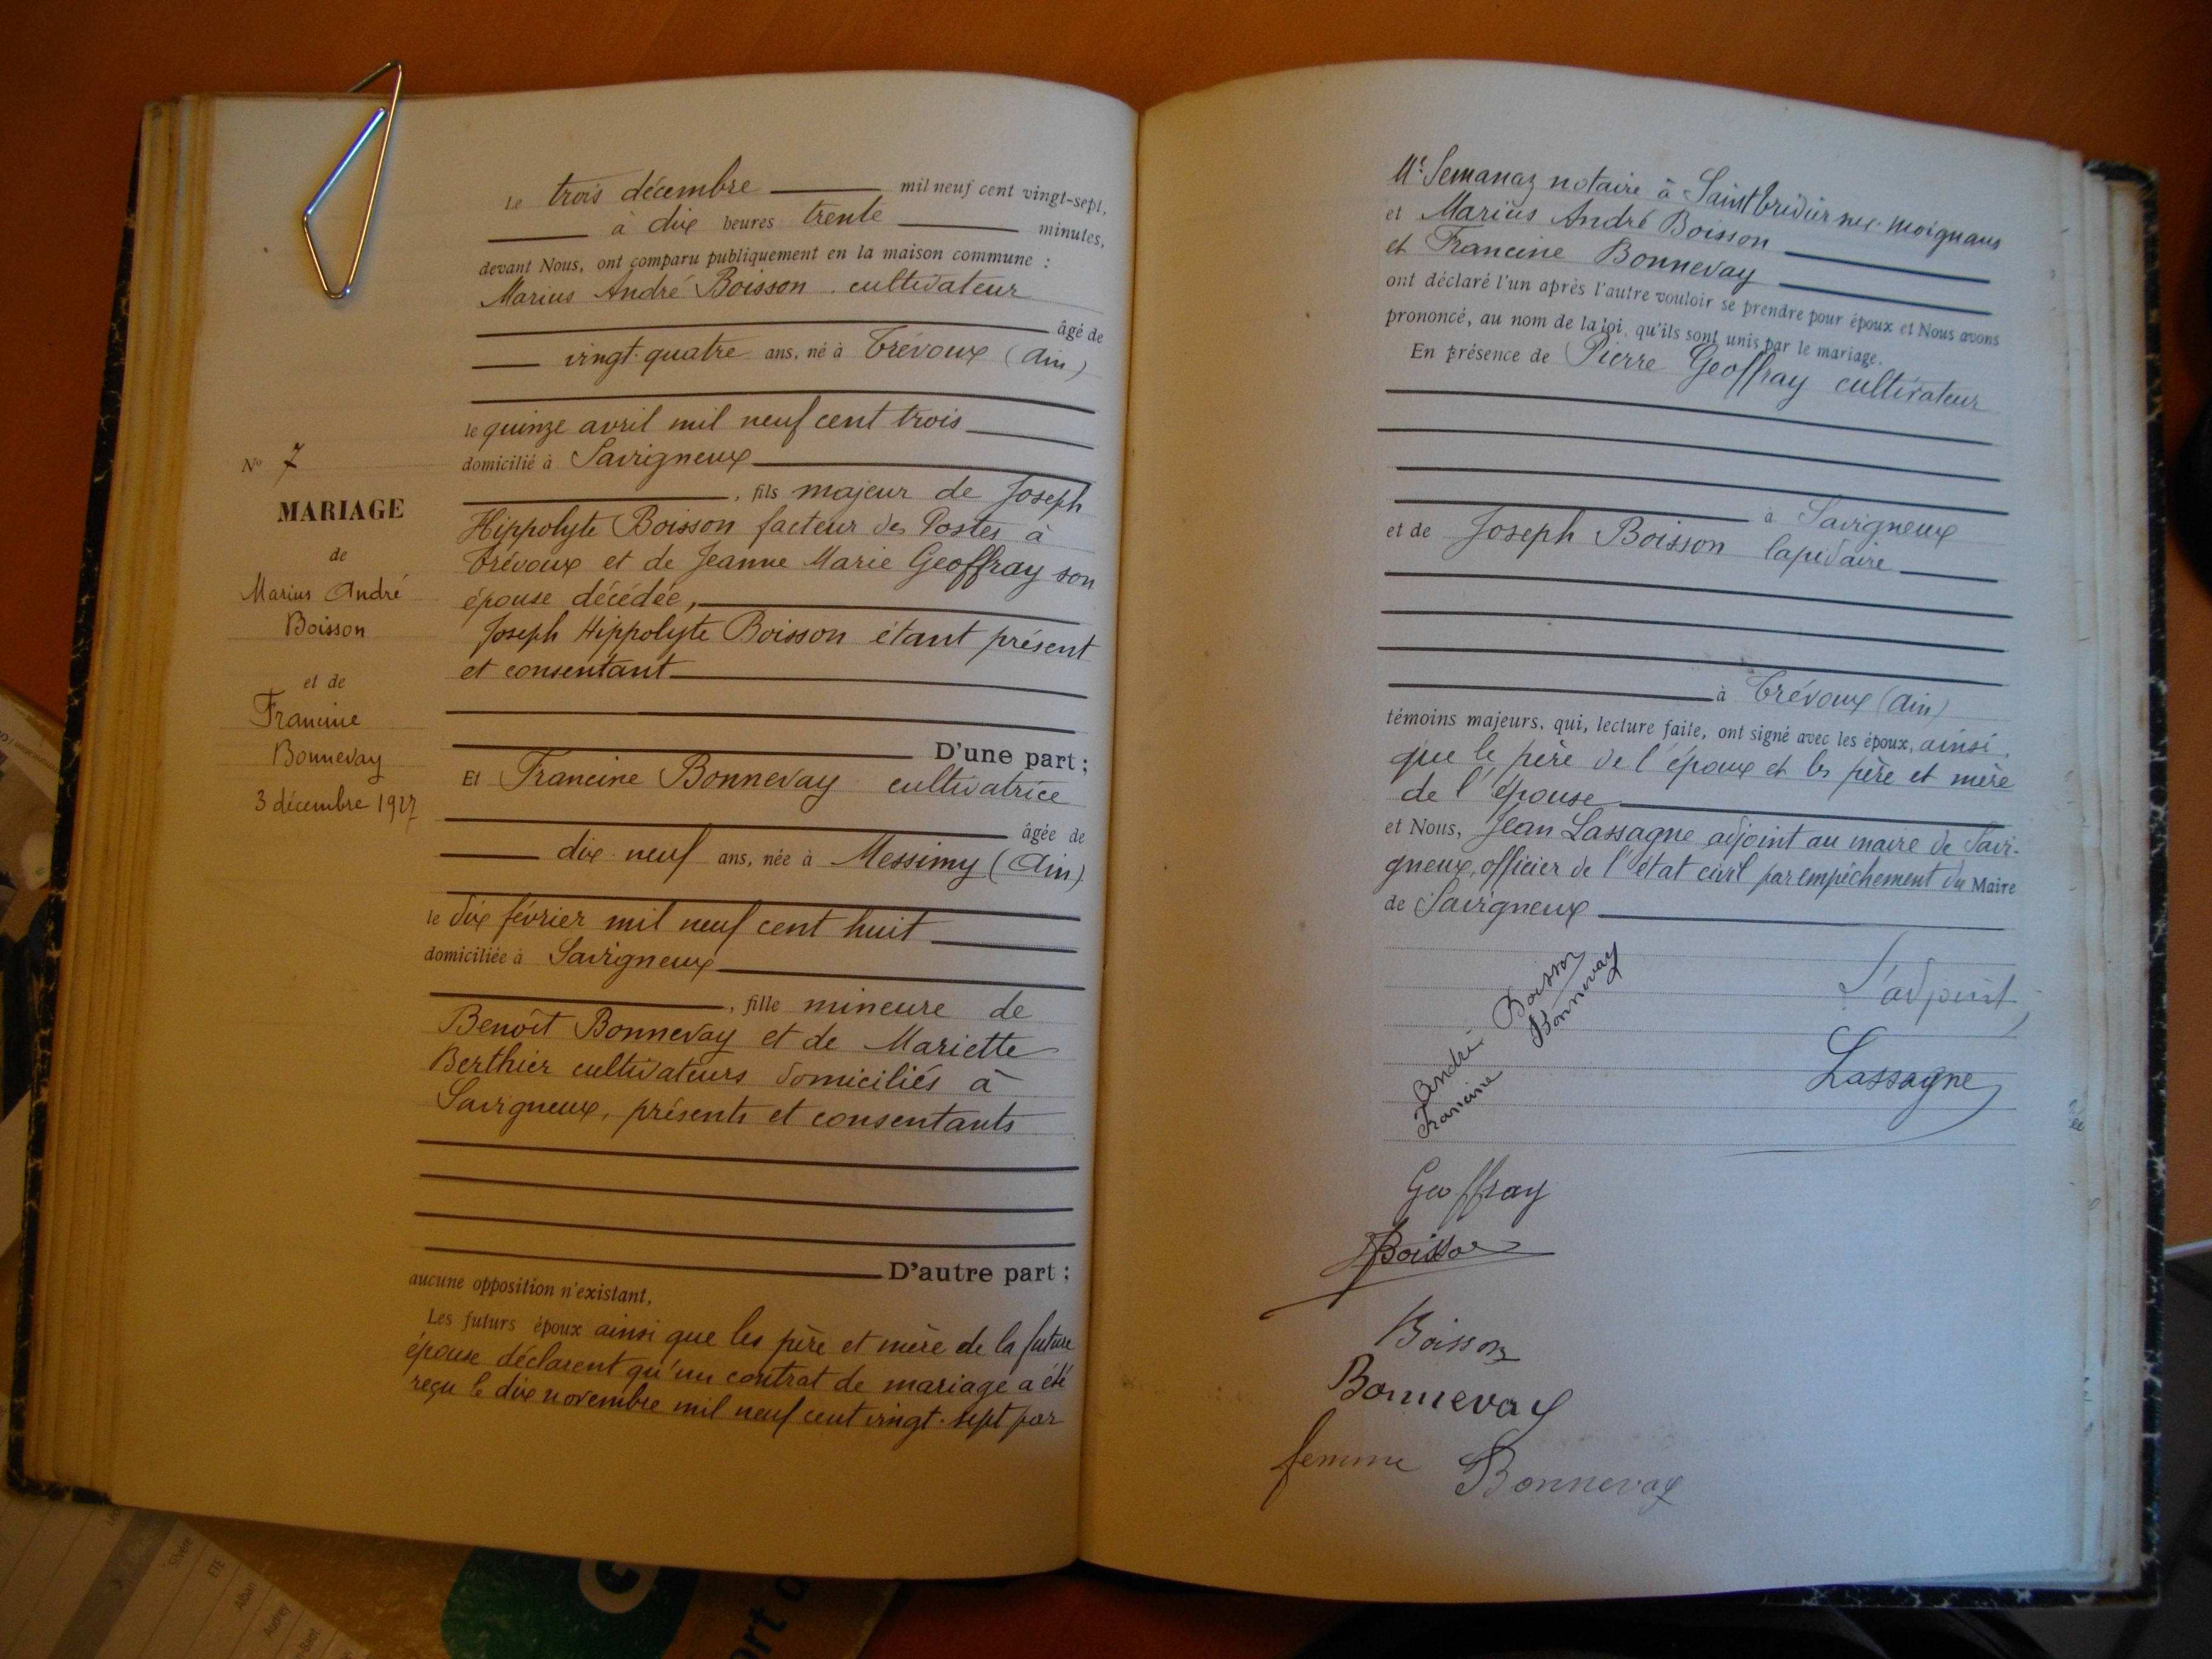 Le trois décembre mil neuf cent vingt-sept,
à dix heures trente minutes,
devant Nous, ont comparu publiquement en la maison commune :
Marius André Boisson cultivateur
âgé de
vingt-quatre ans, né à Trévoux (Ain)
le quinze avril mil neuf cent trois
domicilié à Savigneux
, fils majeur de Joseph
Hippolyte Boisson facteur des Postes à
Trévoux et de Jeanne Marie Geoffray son
épouse décédée,
Joseph Hippolyte Boisson étant présent
et consentant
D'une part ;
Et Francine Bonnevay cultivatrice
âgée de
dix-neuf ans, née à Messimy (Ain)
le dix février mil neuf cent huit
domiciliée à Savigneux
, fille mineure de
Benoît Bonnevay et de Mariette
Berthier cultivateurs domiciliés à
Savigneux, présents et consentants
D'autre part ;
aucune opposition n'existant,
Les futurs époux ainsi que les père et mère de la future
épouse déclarent qu'un contrat de mariage a été
reçu le dix novembre mil neuf cent vingt-sept par
No 7
MARIAGE
de
Marius André
Boisson
et de
Francine
Bonnevay
3 décembre 1927
Me Semanaz notaire à Saint
et Marius André Boisson
et Francine Bonnevay
ont déclaré l'un après l'autre vouloir se prendre pour époux et Nous avons
prononcé, au nom de la loi, qu'ils sont unis par le mariage.
En présence de Pierre Geoffray cultivateur
à Savigneux
et de Joseph Boisson lapidaire
à Trévoux (Ain)
témoins majeurs, qui, lecture faite, ont signé avec les époux, ainsi
que le père de l'époux et les père et mère
de l'épouse
et Nous, Jean Lassagne adjoint au maire de Savi-
gneux, officier de l'état civil par empêchement du Maire
de Savigneux
André Boisson
Francine Bonnevay
L'adjoint,
Lassagne
Geoffray
Boisson
Boisson
Bonnevay
femme Bonnevay
Sivère
ETE
Alban
Audrey